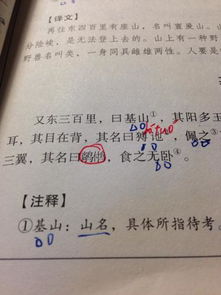 【译文】
再往东四百里有座山，名叫亶爰山。
分险峻，是无法登上去的。山上有一种野
野兽名叫类，一身同具雌雄两性。人要是
又东三百里，曰基山①，其阳多玉
耳，其目在背，其名曰猼訑②，佩之
三翼，其名曰，食之无卧④。
【注释】
①基山：山名，具体所指待考。